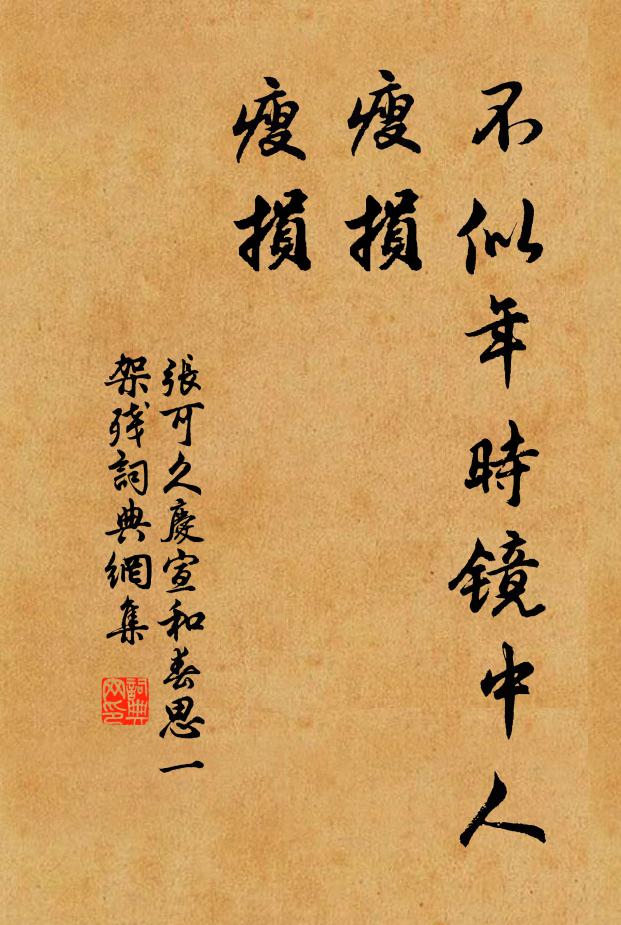 不似年時镜中人
瘦損
瘦損
張可久慶宣和春思一
架残詞典網集
詞典網印